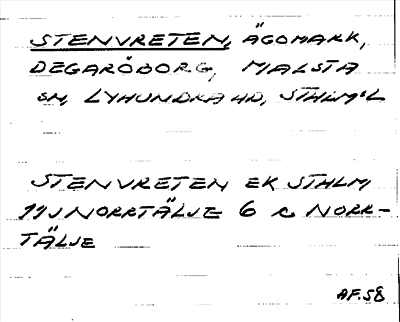 STENVRETEN, ÄGOMARK,
DEGARÖBORG, MALSTA
SN, LYHUNDRA HD, STHLM'L
STENVRETEN EK STHLM
11J NORRTÄLJE 6 c NORR-
TÄLJE
AF.58